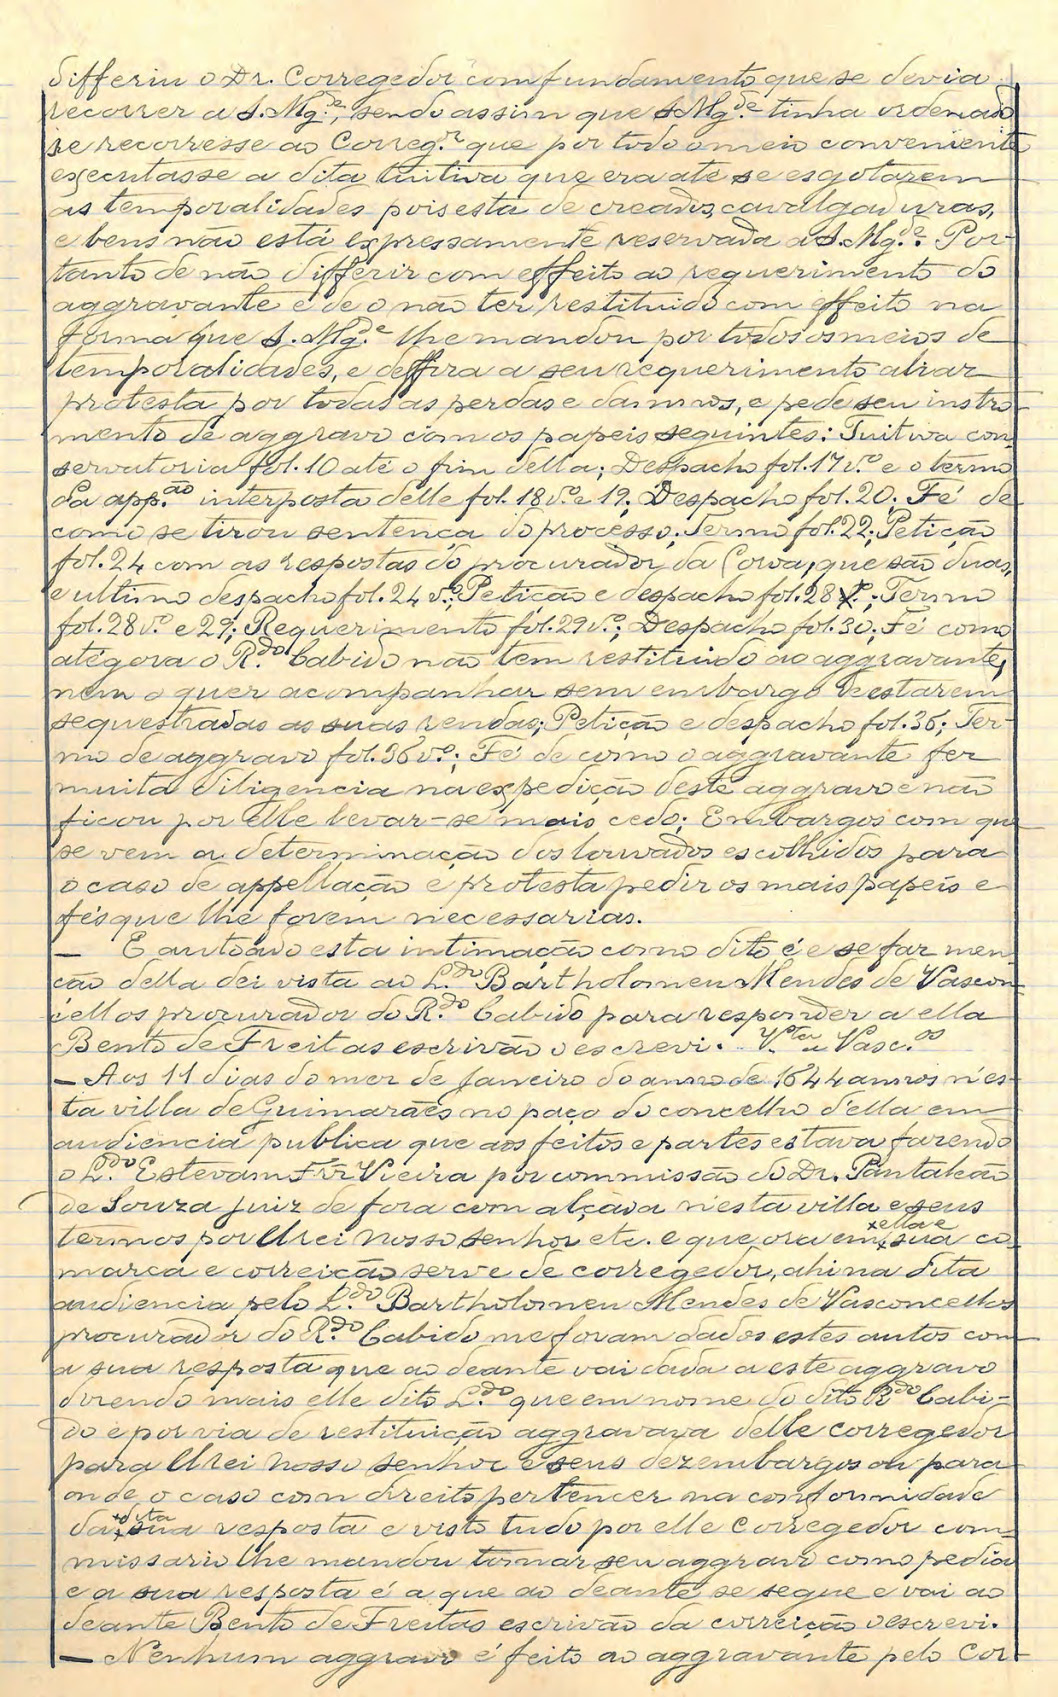 differiu o Dr. Corregedor com fundamento que se devia
recorrer a S. Mg.de, sendo assim que S. Mg.de tinha ordenado
se recorresse ao Correg.r que por todo o meio conveniente
executasse a dita tuitiva que era até se esgotarem
as temporalidades pois esta de creados, cavalgaduras,
e bens não está expressamente reservada a S. Mg.de. Por-
tanto de não differir com effeito ao requerimento do
aggravante e de o não ter restituido com effeito na
forma que S. Mg.de lhe mandou por todos os meios de
temporalidades, e deffira a seu requerimento atraz
protesta por todas as perdas e damnos, e pede seu instro-
mento de aggravo com os papeis seguintes: Tuitiva con-
servatoria fol. 10 até o fim della; Despacho fol. 17 v.o e o termo
da app.ão interposta delle fol. 18 v.o e 19; Despacho fol. 20; Fé de
como se tirou sentença do processo; Termo fol. 22; Petição
fol. 24 com as respostas do procurador da Coroa, que são duas,
e ultimo despacho fol. 24 v.o; Petição e despacho fol. 28 v.o; Termo
fol. 28 v.o e 29; Requerimento fol. 29 v.o; Despacho fol. 30; Fé como
atégora o R.do Cabido não tem restituido ao aggravante,
nem o quer acompanhar sem embargo de estarem
sequestradas as suas rendas; Petição e despacho fol. 36; Ter-
mo de aggravo fol. 36 v.o; Fé de como o aggravante fez
muita diligencia na expedição deste aggravo e não
ficou por elle levar-se mais cedo; Embargos com que
se vem a determinação dos louvados escolhidos para
o caso de appellação e protesta pedir os mais papeis e
fés que lhe forem necessarias.
— E autoado esta intimação como dito é e se faz men-
ção della dei vista ao L.do Bartholomeu Mendes de Vascon-
cellos procurador do R.do Cabido para responder a ella
Bento de Freitas escrivão o escrevi. Vasc.os
— Aos 11 dias do mez de Janeiro do anno de 1644 annos n'es-
ta villa de Guimarães no paço do concelho d'ella em
audiencia publica que aos feitos e partes estava fazendo
o L.do Estevam Frz Vieira por commissão do Dr. Pantaleão
de Souza juiz de fora com alçada n'esta villa e seus
termos por Elrei nosso senhor etc. e que ora em ella e sua co-
marca e correição serve de corregedor, ahi na dita
audiencia pelo L.do Bartholomeu Mendes de Vasconcellos
procurador do R.do Cabido me foram dados estes autos com
a sua resposta que ao deante vai dada a este aggravo
dizendo mais elle dito L.do que em nome do dito R.do Cabi-
do e por via de restituição aggravava delle corregedor
para Elrei nosso senhor e seus dezembargos ou para
onde o caso com direito pertencer na conformidade
da dita sua resposta e visto tudo por elle corregedor com-
missario lhe mandou tomar seu aggravo como pedia
e a sua resposta é a que ao deante se segue e vai ao
deante Bento de Freitas escrivão da correição o escrevi.
— Nenhum aggravo é feito ao aggravante pelo Cor-